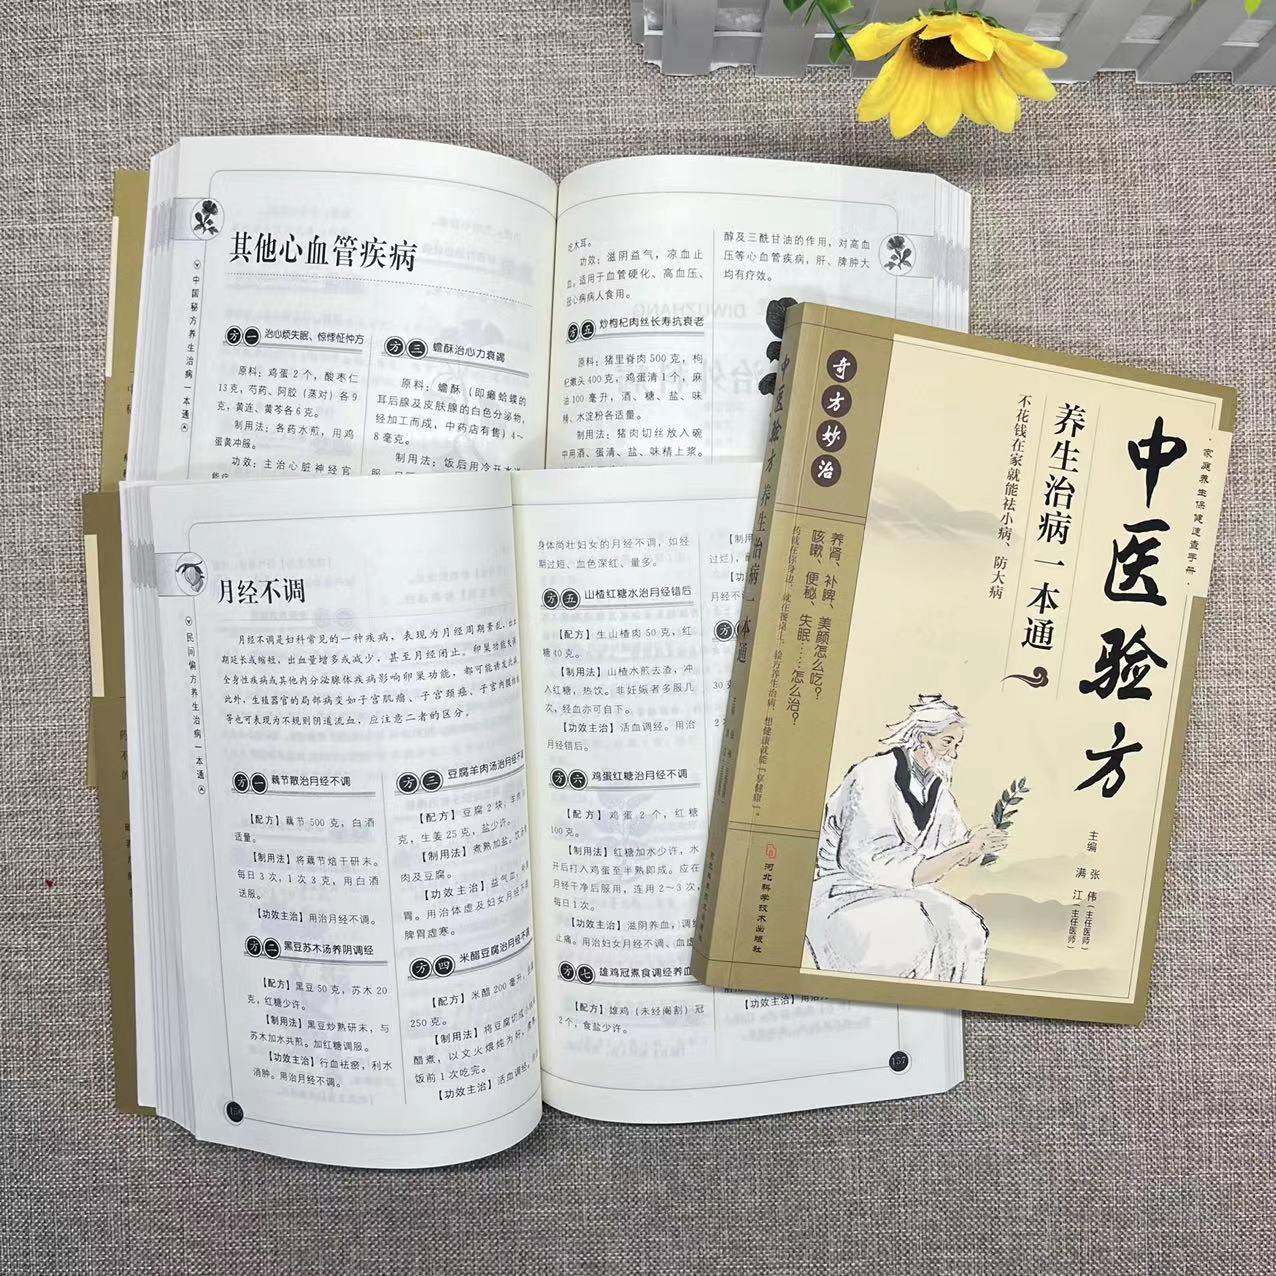 其他心血管疾病
中国秘方养生治病一本通
方一 治心烦失眠、惊悸怔忡方
原料：鸡蛋2个，酸枣仁
13克，芍药、阿胶（蒸对）各9
克，黄连、黄芩各6克。
制用法：各药水煎，用鸡
蛋黄冲服。
功效：主治心脏神经官
方三 蟾酥治心力衰竭
原料：蟾酥（即癞蛤蟆的
耳后腺及皮肤腺的白色分泌物，
经加工而成，中药店有售）4～
8毫克。
制用法：饭后用冷开水送
吃木耳。
功效：滋阴益气，凉血止
血。适用于血管硬化、高血压、
冠心病病人食用。
方五 炒枸杞肉丝长寿抗衰老
原料：猪里脊肉500克，枸
杞嫩头400克，鸡蛋清1个，麻
油100毫升，酒、糖、盐、味
精、水淀粉各适量。
制用法：猪肉切丝放入碗
中用酒、蛋清、盐、味精上浆。
醇及三酰甘油的作用，对高血
压等心血管疾病，肝、脾肿大
均有疗效。
月经不调
民间偏方养生治病一本通
月经不调是妇科常见的一种疾病，表现为月经周期紊乱、出血
期延长或缩短，出血量增多或减少，甚至月经闭止。卵巢功能失调、
全身性疾病或其他内分泌腺体疾病影响卵巢功能，都可能诱发此病。
此外，生殖器官的局部病变如子宫肌瘤、子宫颈癌、子宫内膜结核
等也可表现为不规则阴道流血，应注意二者的区分。
方一 藕节散治月经不调
【配方】藕节500克，白酒
适量。
【制用法】将藕节焙干研末。
每日3次，1次3克，用白酒
送服。
【功效主治】用治月经不调。
方二 黑豆苏木汤养阴调经
【配方】黑豆50克，苏木20
克，红糖少许。
【制用法】黑豆炒熟研末，与
苏木加水共煎。加红糖调服。
【功效主治】行血祛瘀，利水
消肿。用治月经不调。
方三 豆腐羊肉汤治月经不调
【配方】豆腐2块，羊肉
克，生姜25克，盐少许。
【制用法】煮熟加盐。饮汤食
肉及豆腐。
【功效主治】益气血，补脾
胃。用治体虚及妇女月经不调，
脾胃虚寒。
方四 米醋豆腐治月经不调
【配方】米醋200毫升，豆腐
250克。
【制用法】将豆腐切成小块用
醋煮，以文火煨炖为好，煮熟。
饭前1次吃完。
【功效主治】活血调经。
身体尚壮妇女的月经不调，如经
期过短、血色深红、量多。
方五 山楂红糖水治月经错后
【配方】生山楂肉50克，红
糖40克。
【制用法】山楂水煎去渣，冲
入红糖，热饮。非妊娠者多服几
次，经血亦可自下。
【功效主治】活血调经。用治
月经错后。
方六 鸡蛋红糖治月经不调
【配方】鸡蛋2个，红糖
100克。
【制用法】红糖加水少许，水
开后打入鸡蛋至半熟即成。应在
月经干净后服用，连用2～3次，
每日1次。
【功效主治】滋阴养血，调经
止痛。用治妇女月经不调、血虚
方七 雄鸡冠煮食调经养血
【配方】雄鸡（未经阉割）冠
2个，食盐少许。
【制用
过烂），
【功
月经不
方
30克
【功效主治】用治
157
家庭养生保健速查手册
中医验方
养生治病一本通
不花钱在家就能祛小病、防大病
奇方妙治
养肾、补脾、美颜怎么吃？
咳嗽、便秘、失眠……怎么治？
主编 张伟（主任医师）
满江（主任医师）
河北科学技术出版社
中医验方 养生治病一本通